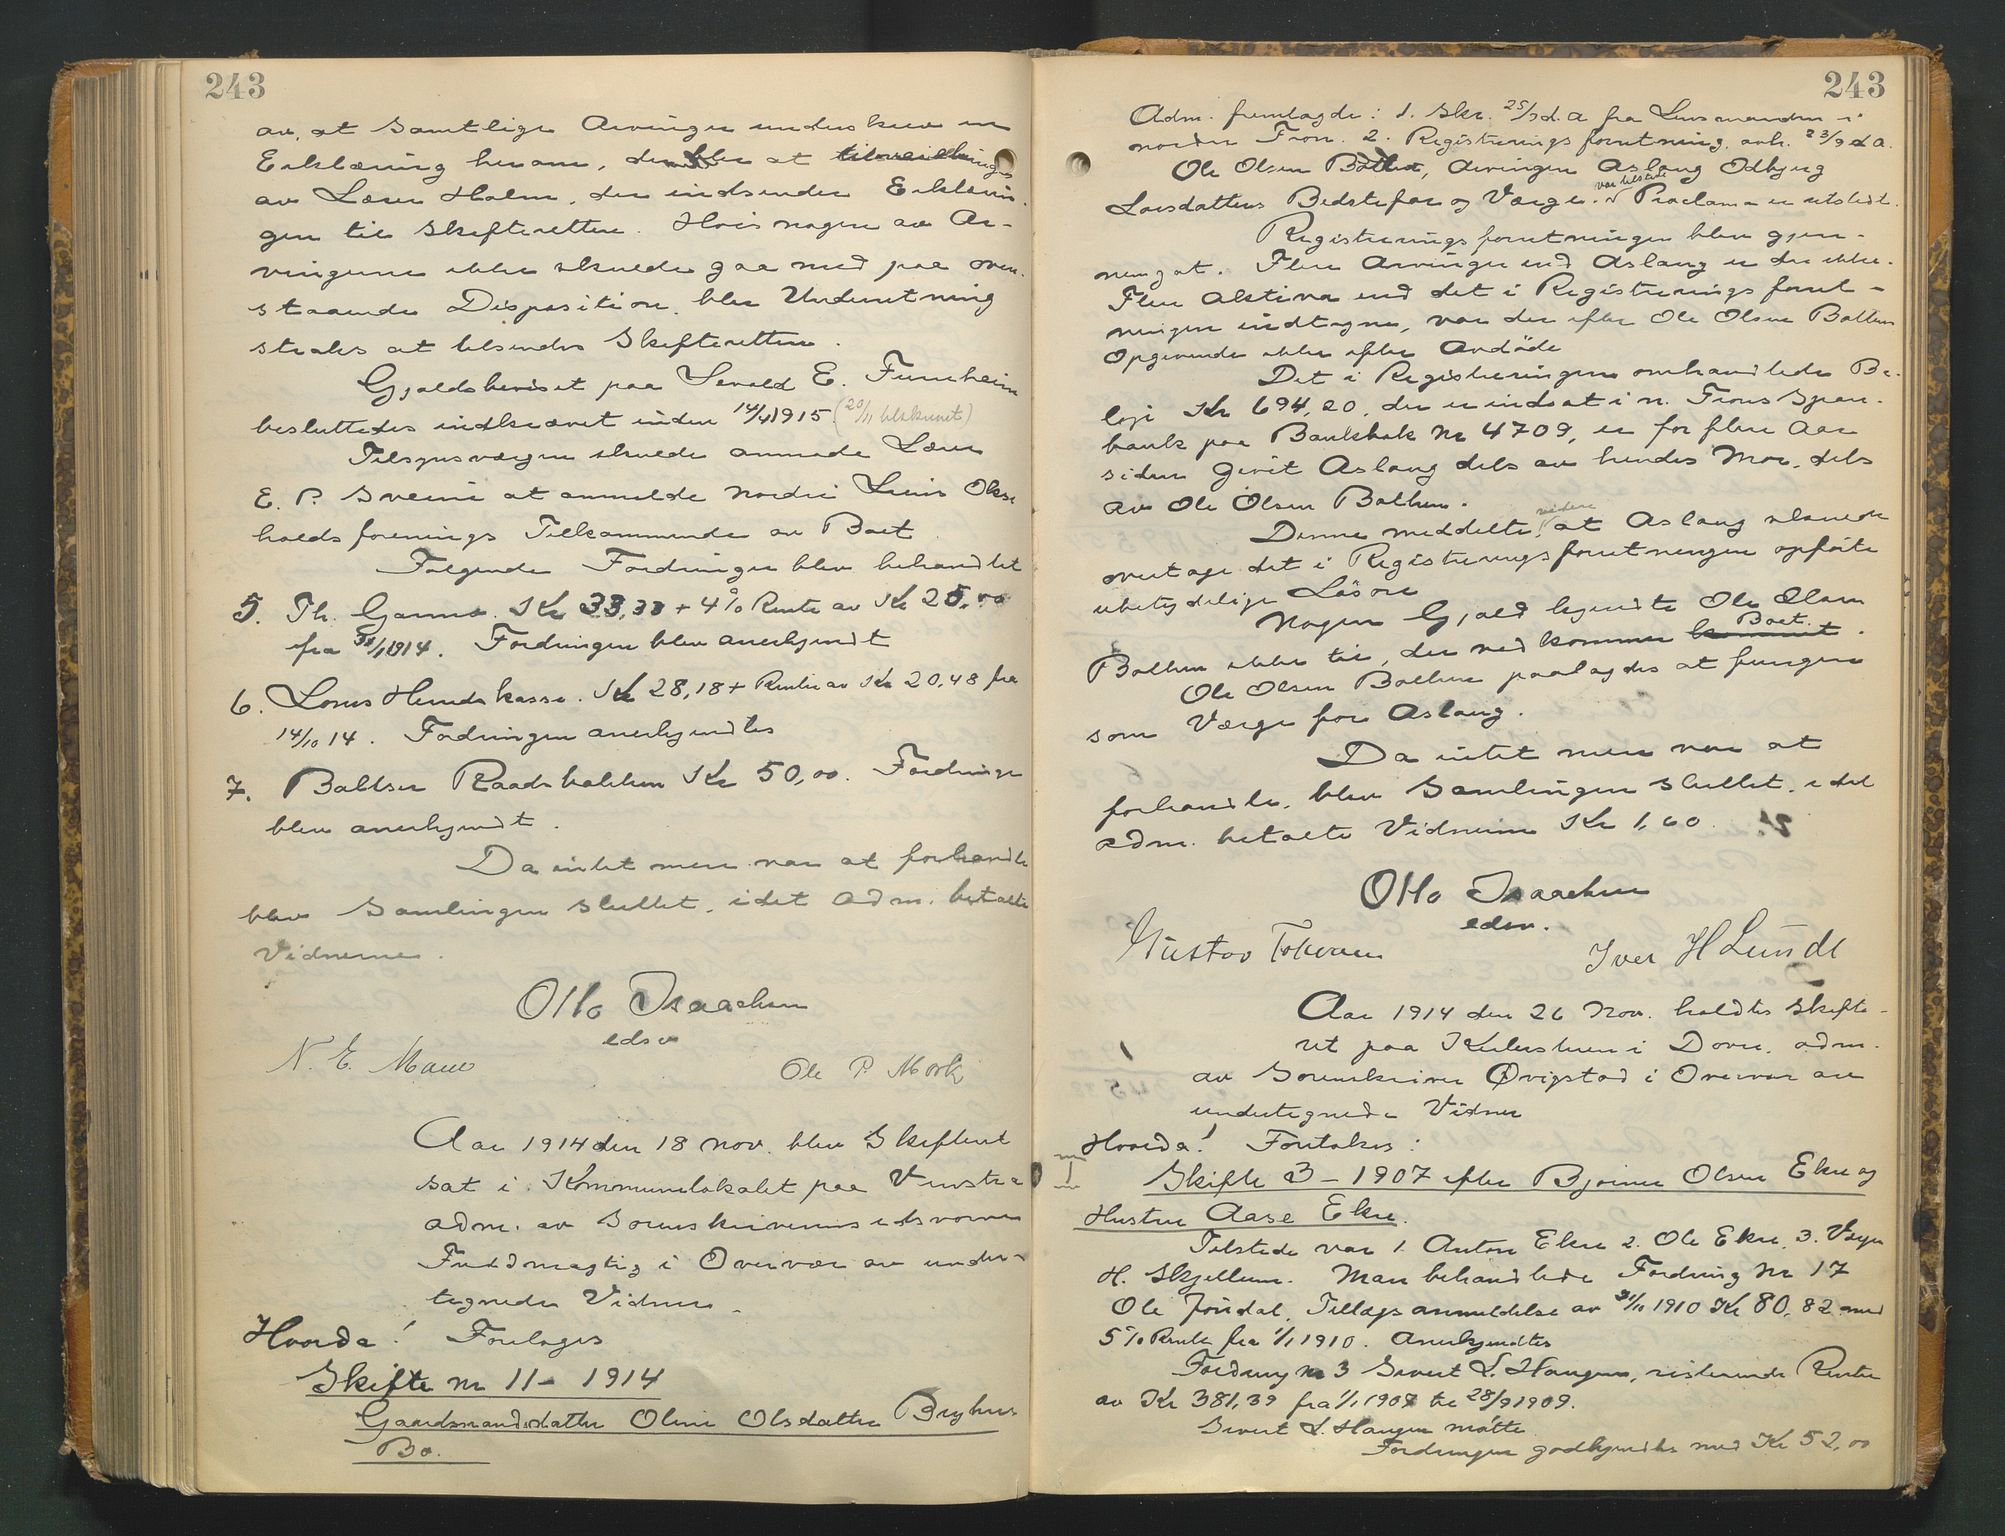 243
av, at Samtlige Arvinger underskrev en
Erklæring herom, der blev at
av Lærer Holm, der indsender Erklærin-
gen til Skifteretten. Hvis nogen av Ar-
vingerne ikke skulde gaa med paa oven-
staaende Disposition, blev Underretning
straks at tilsendes Skifteretten.
Gjældsbeviset paa Sevald E. Furuheim
besluttedes indkrævet inden 14/4 1915. (20/11 tilskrevet)
Tilsynsværgen skulde anmode Lærer
E. P. Sveine at anmelde nordre Lesns Okse
holdsforenings Tilkommende av Boet
Følgende Fordringer blev behandlet
5. Th. Gamme. Kr 33,33 + 4% Rente av Kr 25,00
fra 1914. Fordringen blev anerkjendt
6. Lærernes Kasse. Kr 28,18 + Renter av Kr 20,48 fra
14/10 14. Fordringen anerkjendtes
7. Baltser Raadsbakken Kr 50,00. Fordringen
blev anerkjendt.
Da intet mere var at forhandle
blev Samlingen sluttet, idet Adm. betalte
Vidnerne.
Otto Isaachsen
edsv
N. E. Ole P. Mork
Aar 1914 den 18 Nov. blev Skifteret
sat i Kommunelokalet paa Vinstra
adm. av Sorenskriverens edsvorne
Fuldmægtig i Overvær av under-
tegnede Vidner.
Hvorda! Foretoges
Skifte nr 11 - 1914
Gaardmandsdatter Oline Olsdatter Bryhns
Bo.
243
Adm. fremlagde: 1. Skr. 25/9 d.a fra Lensmanden i
nordre Fron. 2. Registreringsforretning avh. 23/9 d a.
Ole Olsen Bakken, Arvingen Aslaug Odbjørg
Larsdatters Bedstefar og Værge. var tilstede Proclama er utstedt.
Registreringsforretningen blev gjen-
nemgaat. Flere Arvinger end Aslaug er der ikke.
Flere Aktiva end det i Registreringsforret-
ningen indtagne, var der efter Ole Olsen Bakkens
Opgivende ikke efter Avdøde
Det i Registreringen omhandlede Be-
løp Kr 694,20, der er indsat i n. Frons Spare-
bank paa Bankbok Nr 4709, er for flere Aar
siden givet Aslaug dels av hendes Mor, dels
av Ole Olsen Bakken.
Denne meddelte videre at Aslaug ønskede
overtage det i Registreringsforretningen opførte
ubetydelige Løsøre
Nogen Gjæld kjendte Ole Olsen
Bakken ikke til, der vedkommer Boet.
Ole Olsen Bakken paalagdes at fungere
som Værge for Aslaug.
Da intet mere var at
forhandle, blev Samlingen sluttet, idet
adm. betalte Vidnerne Kr 1,60.
Otto Isaachsen
edsv.
Gustav Tokvam Iver H Lunde
Aar 1914 den 26 Nov. holdtes Skifte-
ret paa Kulestuen i Dovre, adm.
av Sorenskriver Øvigstad i Overvær av
undertegnede Vidner
Hvorda! Foretokes:
Skifte 3 - 1907 efter Bjørner Olsen Ekre og
Hustru Aase Ekre.
Tilstede var 1. Anton Ekre 2. Ole Ekre, 3. Værge
H. Skjellum. Man behandlede Fordring Nr 17
Ole Jøndal, Tillægsanmeldelse av 21/11 1910 Kr 80,82 med
5% Rente fra 1/1 1910. Anerkjendtes
Fordring nr 3 Sivert L. Haugen, resterende Renter
av Kr 381,39 fra 1/1 1907 til 28/9 1909.
Sivert L. Haugen møtte
Fordringen godkjendtes med Kr 52,00